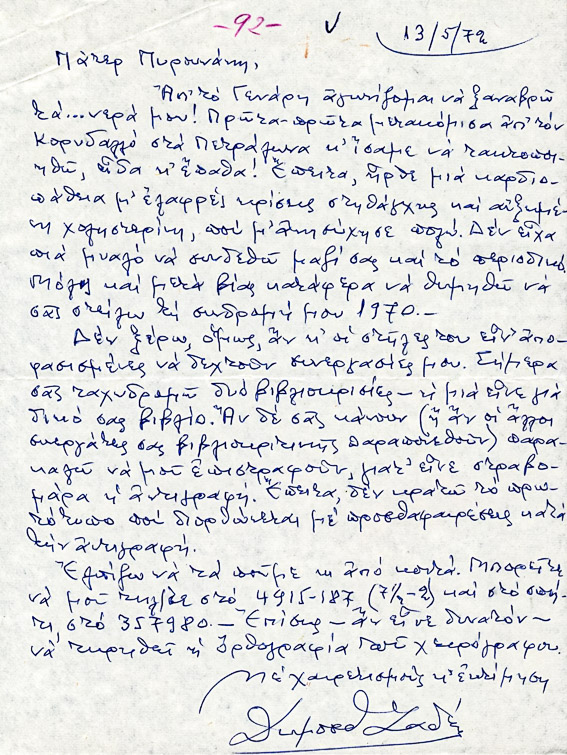 -92-
13/5/72
Πάτερ Πυρουνάκη,
Ἀπ' τό Γενάρη ἀγωνίζομαι νά ξαναβρῶ
τά... νερά μου! Πρῶτα-πρῶτα μετακόμισα ἀπ' τόν
Κορυδαλλό στά Πετράλωνα κ' ἴσαμε νά τακτοποι-
ηθῶ, εἶδα κ' ἔπαθα! Ἔπειτα, ἦρθε μιά καρδιο-
πάθεια μ' ἐλαφρές κρίσεις στηθάγχης καί αὐξημέ-
νη χοληστερίνη, πού μ' ἀνησύχησε πολύ. Δέν εἶχα
πιά μυαλό νά συνδεθῶ μαζί σας καί τό περιοδικό.
Μόλις καί μετά βίας κατάφερα νά θυμηθῶ νά
σᾶς στείλω τή συδρομή μου 1970.-
Δέν ξέρω, ὅμως, ἄν κ' οἱ στῆλες του εἶν' ἀπο-
φασισμένες νά δεχτοῦν συνεργασίες μου. Σήμερα
σᾶς ταχυδρομῶ δυό βιβλιοκρισίες - ἡ μιά εἶνε γιά
δικό σας βιβλίο. Ἄν δέ σᾶς κάνουν (ἤ ἄν οἱ ἄλλοι
συνεργάτες σας βιβλιοκριτικῆς παραπονεθοῦν) παρα-
καλῶ νά μοῦ ἐπιστραφοῦν, γιατ' εἶνε στραβο-
μάρα ἡ ἀντιγραφή. Ἔπειτα, δέν κρατῶ τό πρω-
τότυπο πού διορθώνεται μέ προσθαφαιρέσεις κατά
τήν ἀντιγραφή.
Ἐλπίζω νά τά ποῦμε κι ἀπό κοντά. Μπορεῖτε
νά μοῦ τηλ/τε στό 4915-187 (7½-2) καί στό σπί-
τι στό 357980.- Ἐπίσης - ἄν εἶνε δυνατόν -
νά τηρηθεῖ ἡ ὀρθογραφία τοῦ χειρογράφου.
Μέ χαιρετισμούς κ' ἐκτίμηση